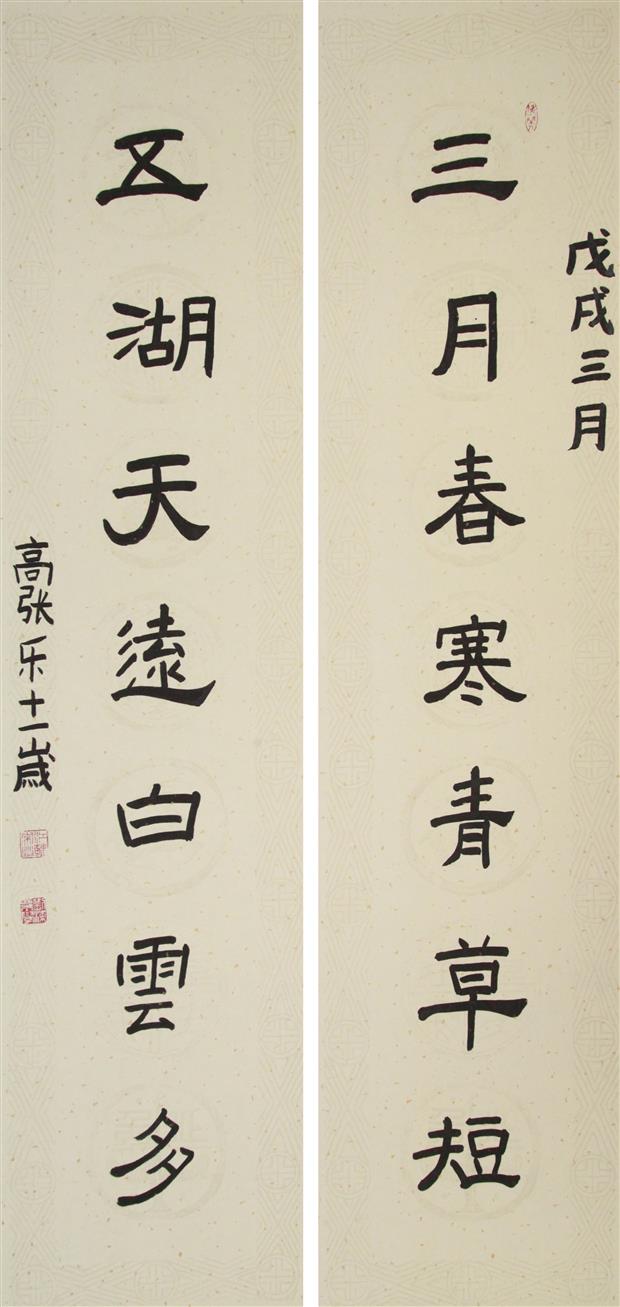 戊戌三月
三月春寒青草短
五湖天遠白雲多
高张乐十一歲